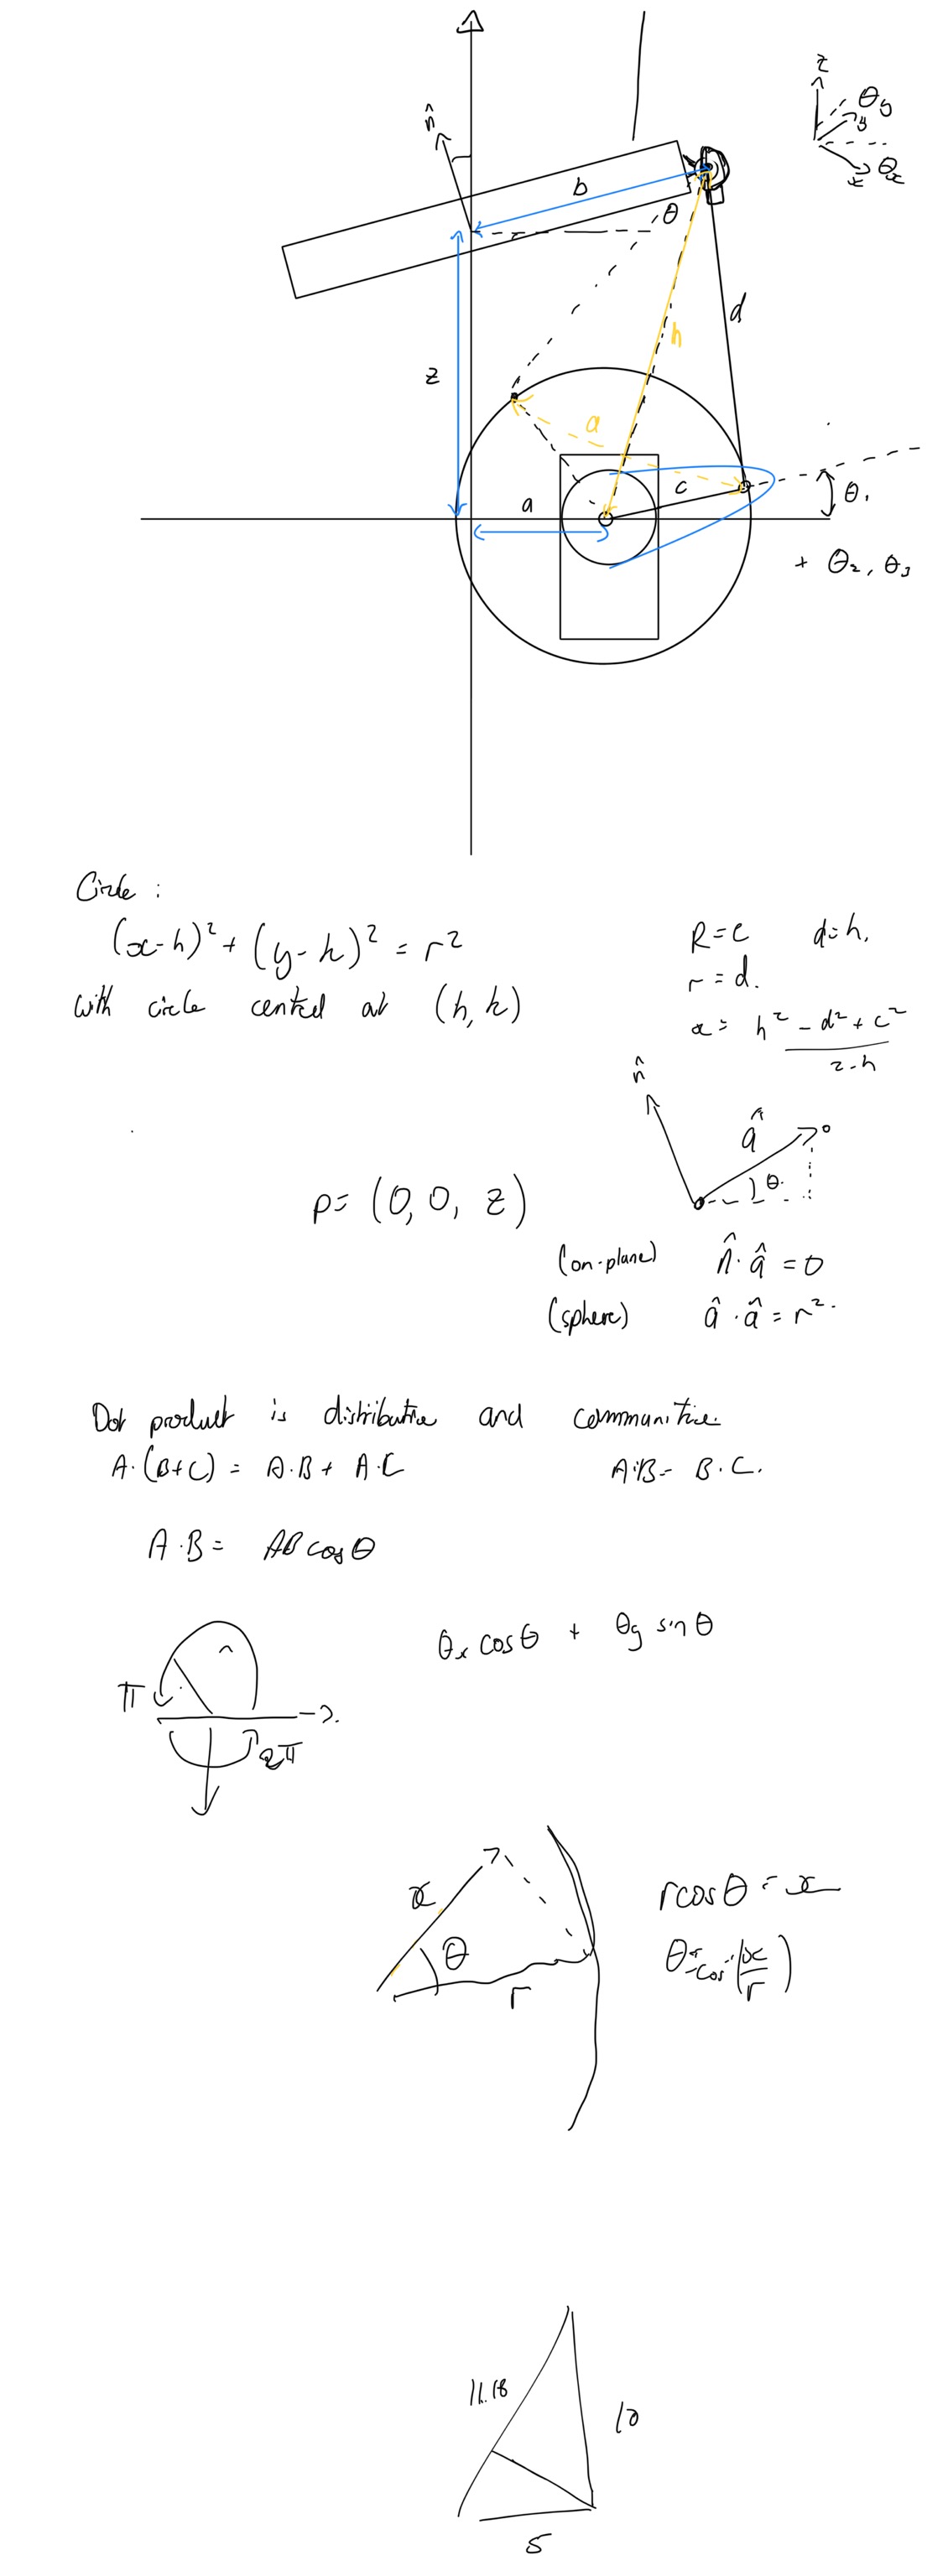 z
θy
y
x
θx
n̂
b
θ
z
h
d
a
c
a
θ₁
+ θ₂, θ₃
Circle :
(x-h)² + (y-k)² = r²
with circle centred at (h, k)
R = c d = h.
r = d.
x = h² - d² + c²
2·h
n̂
â
θ
p = (0, 0, z)
(on-plane) n̂ · â = 0
(sphere) â · â = r².
Dot product is distributive and communitive.
A·(B+C) = A·B + A·C A·B = B·C.
A·B = AB cosθ
θx cosθ + θy sinθ
π
2π
x
θ
r
r cosθ = x
θ = cos⁻¹(x/r)
11.18
10
5